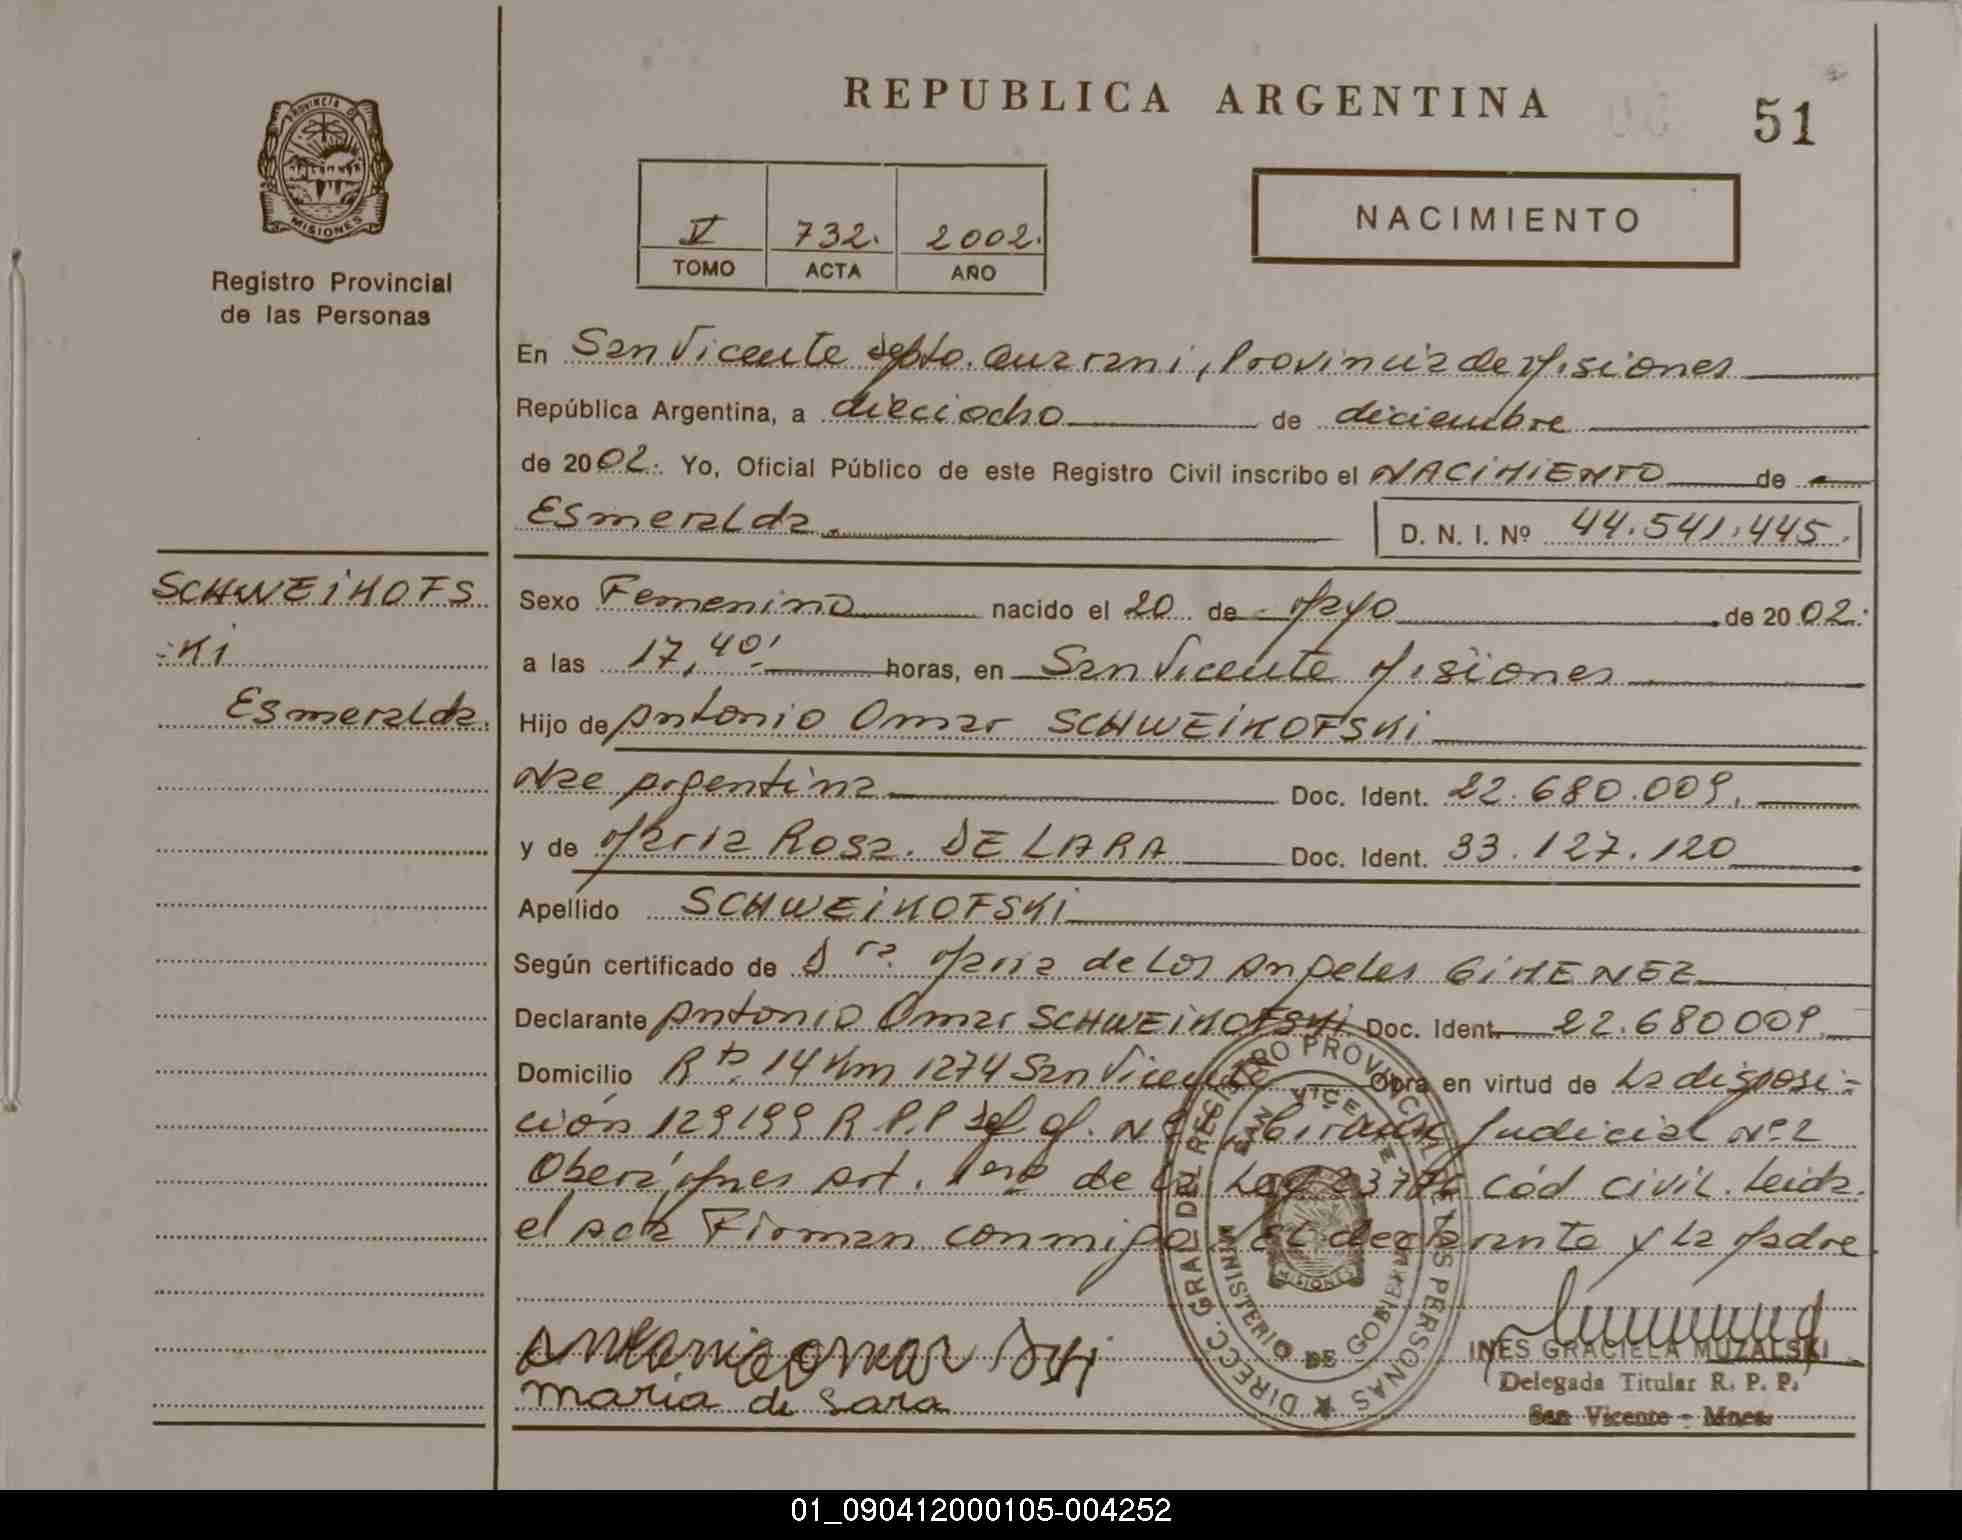 REPUBLICA ARGENTINA
51
PROVINCIA DE
MISIONES
Registro Provincial
de las Personas
V 732. 2002.
TOMO ACTA AÑO
NACIMIENTO
En San Vicente depto. Guarani, Provincia de Misiones
República Argentina, a dieciocho de diciembre
de 2002. Yo, Oficial Público de este Registro Civil inscribo el NACIMIENTO de
Esmeralda.
D. N. I. Nº 44.541.445.
SCHWEIKOFS
-KI
Esmeralda.
Sexo Femenino nacido el 20 de Mayo de 2002.
a las 17,40' horas, en San Vicente Misiones
Hijo de Antonio Omar SCHWEIKOFSKI
Nac Argentina Doc. Ident. 22.680.009.
y de Maria Rosa. DE LARA Doc. Ident. 33.127.120
Apellido SCHWEIKOFSKI
Según certificado de Dra. Maria de Los Angeles GIMENEZ
Declarante Antonio Omar SCHWEIKOFSKI Doc. Ident. 22.680009.
Domicilio Rta. 14 Km 1274 San Vicente Obra en virtud de La disposi=
ción 129199 R.P.P Judicial Nº 2
Oberá, Mnes Art. 1ero de La Ley Cód Civil. Leida.
el Acta Firman conmigo el declarante y La Madre
DIRECC. GRAL DEL REGISTRO PROVINCIAL DE LAS PERSONAS
SAN VICENTE
MINISTERIO DE GOBIERNO
MISIONES
Antonio omar
maria de Lara
INES GRACIELA MUZALSKI
Delegada Titular R. P. P.
San Vicente - Mnes.
01_090412000105-004252